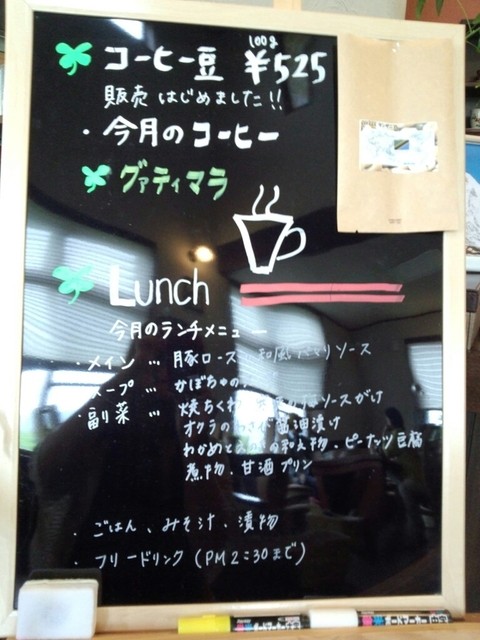 コーヒー豆 100g ¥525
販売 はじめました!!
・今月のコーヒー
グァティマラ
Lunch
今月のランチメニュー
・メイン … 豚ロース 和風 ソース
スープ … かぼちゃの
・副菜 … 焼ちくわ ソースがけ
オクラのわさび醤油漬け
わかめと の和え物・ピーナッツ豆腐
煮物・甘酒プリン
・ごはん、みそ汁、漬物
・フリードリンク (PM2:30まで)